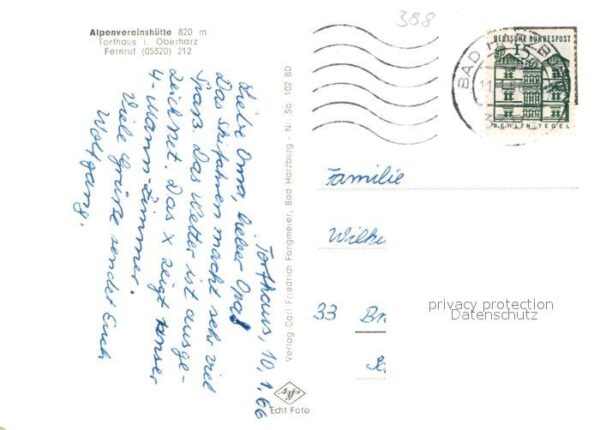 Alpenvereinshütte 820 m
Torfhaus i. Oberharz
Fernruf (05320) 212
388
DEUTSCHE BUNDESPOST
15
BERLIN-TEGEL
BAD HARZB
Torfhaus, 10.1.66
Liebe Oma, lieber Opa!
Das Skifahren macht sehr viel
Spaß. Das Wetter ist ausge-
zeichnet. Das X zeigt unser
4-Mann-Zimmer.
Viele Grüße sendet Euch
Wolfgang.
Verlag Carl Friedrich Fangmeier, Bad Harzburg - Nr. So. 102 BD
Agfa
Echt Foto
Familie
Wilh
33 Br
privacy protection
Datenschutz